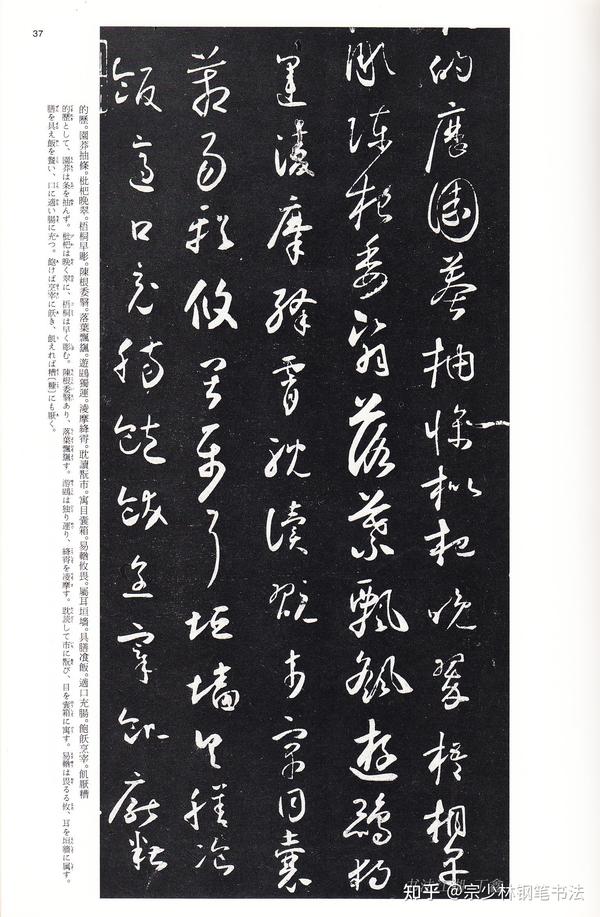 37
的歷園莽抽條枇杷晚翠梧桐早
彫陳根委翳落葉飄颻遊鵾獨
運凌摩絳霄耽讀翫市寓目囊
箱易輶攸畏屬耳垣墻具膳飡
飯適口充腸飽飫烹宰飢厭糟
的歷。園莽抽條。枇杷晚翠。梧桐早彫。陳根委翳。落葉飄颻。遊鵾獨運。凌摩絳霄。耽讀翫市。寓目囊箱。易輶攸畏。屬耳垣墻。具膳飡飯。適口充腸。飽飫烹宰。飢厭糟
的歷として、園莽は条を抽んず。枇杷は晚く翠に、梧桐は早く彫む。陳根委翳あり、落葉飄颻す。游鵾は独り運り、絳霄を凌摩す。耽読して市に翫び、目を囊箱に寓す。易輶は畏るる攸、耳を垣牆に属す。
膳を具え飯を餐い、口に適い腸に充つ。飽けば烹宰に飫き、飢えれば糟〔糠〕にも厭く。
知乎 @宗少林钢笔书法